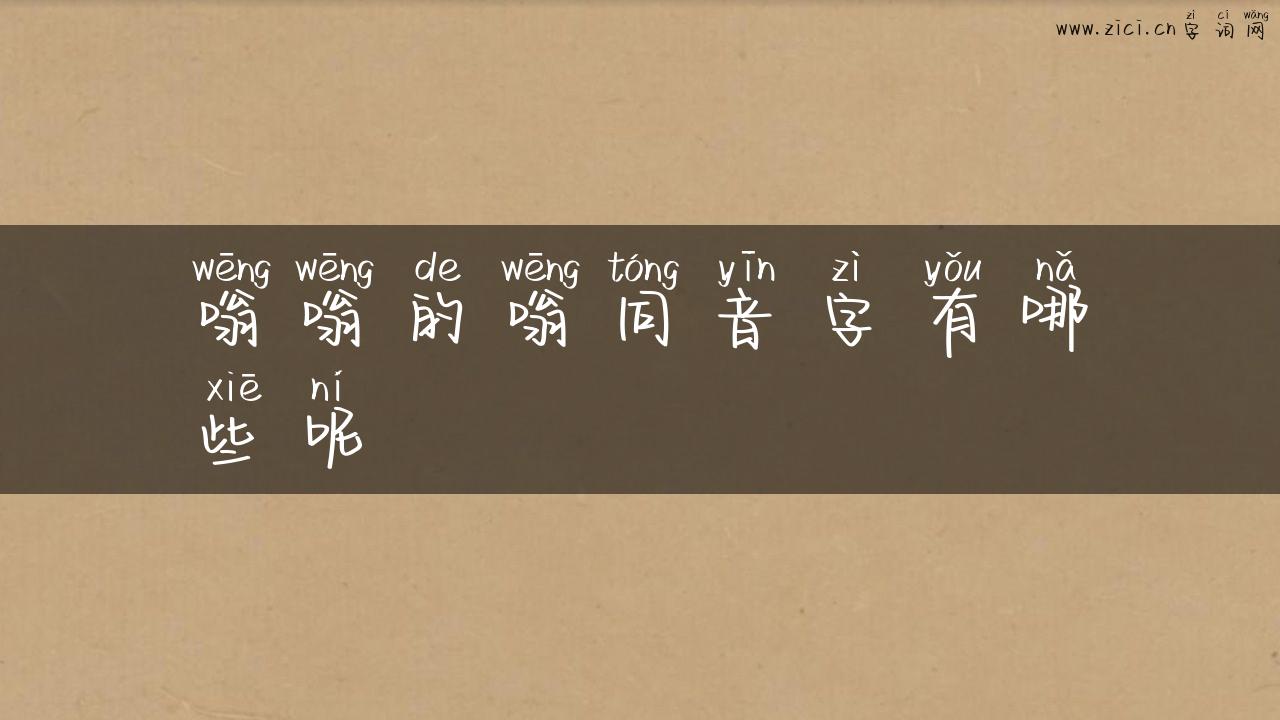 zì cí wǎng
www.zici.cn 字词网
wēng wēng de wēng tóng yīn zì yǒu nǎ
嗡嗡的嗡同音字有哪
xiē ní
些呢